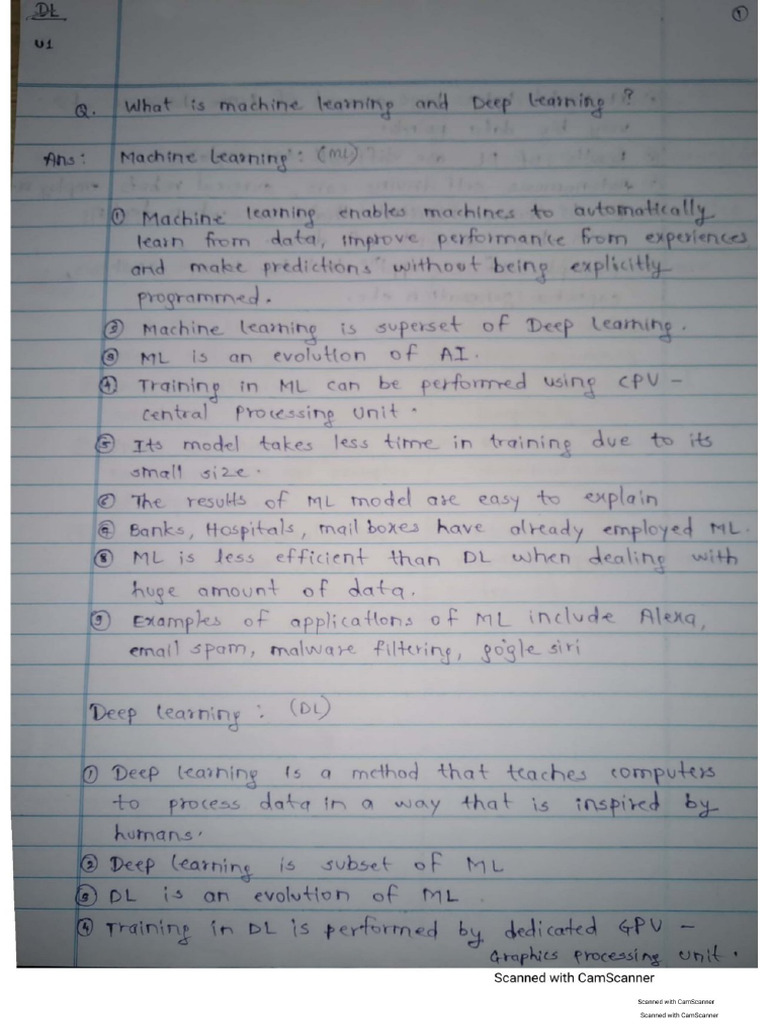 DL
1
U1
Q. What is machine learning and Deep learning?
Ans: Machine Learning: (ML)
① Machine learning enables machines to automatically
learn from data, improve performance from experiences
and make predictions without being explicitly
programmed.
② Machine learning is superset of Deep Learning.
③ ML is an evolution of AI.
④ Training in ML can be performed using CPU -
central Processing Unit.
⑤ Its model takes less time in training due to its
small size.
⑥ The results of ML model are easy to explain
⑦ Banks, Hospitals, mail boxes have already employed ML.
⑧ ML is less efficient than DL when dealing with
huge amount of data.
⑨ Examples of applications of ML include Alexa,
email spam, malware filtering, gogle siri
Deep learning: (DL)
① Deep learning is a method that teaches computers
to process data in a way that is inspired by
humans.
② Deep learning is subset of ML
③ DL is an evolution of ML.
④ Training in DL is performed by dedicated GPU -
Graphics processing unit.
Scanned with CamScanner
Scanned with CamScanner
Scanned with CamScanner